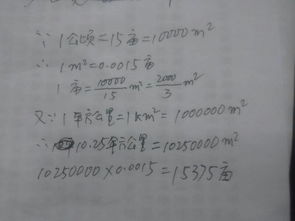 ∵ 1公顷=15亩=10000m²
∴ 1m²=0.0015亩
1亩=10000/15 m²=2000/3 m²
又∵1平方公里=1km²=1000000m²
∴ 10.25平方公里=10250000m²
10250000×0.0015=15375亩